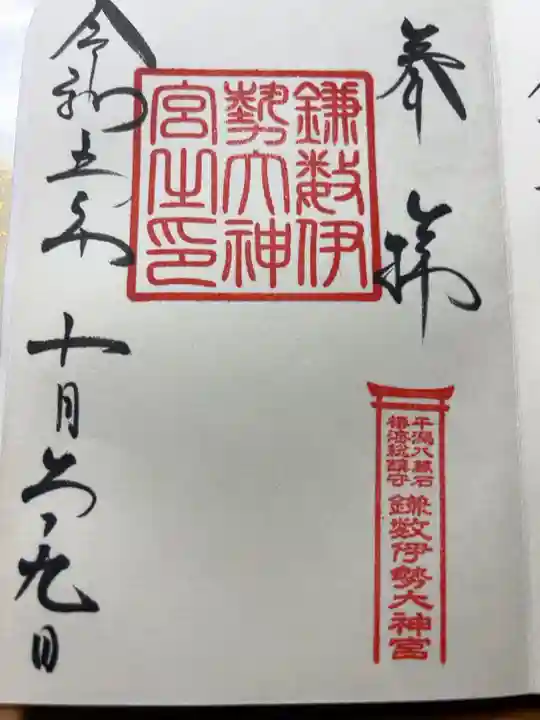 奉拝
鎌数伊
勢大神
宮之印
干潟八萬石
椿海総鎮守
鎌数伊勢大神宮
令和五年十月 九日